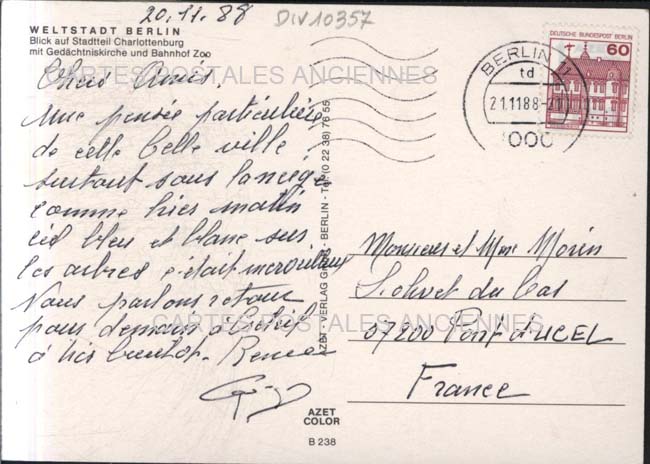 20.11.88
DIV10357
WELTSTADT BERLIN
Blick auf Stadtteil Charlottenburg
mit Gedächtniskirche und Bahnhof Zoo
CARTES POSTALES ANCIENNES
Chers Amis,
Une pensée particulière
de cette belle ville
surtout sous la neige
comme hier matin
ciel bleu et blanc sur
les arbres c'était merveilleux
Nous partons
pour demain
à bientôt.
DEUTSCHE BUNDESPOST BERLIN
60
BERLIN 11
td
21.11.88
1000
BERLIN - Tel. (0 22 38) 76 55
VERLAG
Monsieur et Mme Morin
07200 Pont d'UCEL
France
CARTES POSTALES ANCIENNES
AZET
COLOR
B 238